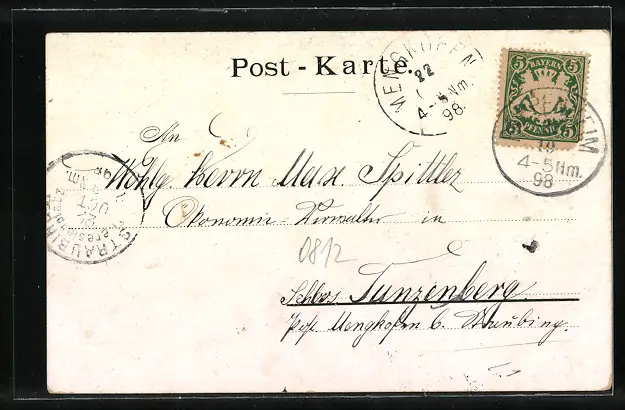 Post - Karte.
MENGKOFEN
22
4-5 Nm.
98.
5 BAYERN 5
5 PFENNIG 5
HEIM
19
4-5 Nm.
98
STRAUBING
24
OCT
An
Wohlg. Herrn Max Spittler
Ökonomie-Verwalter in
0812
Schloss Tunzenberg
Post Mengkofen b. Straubing.